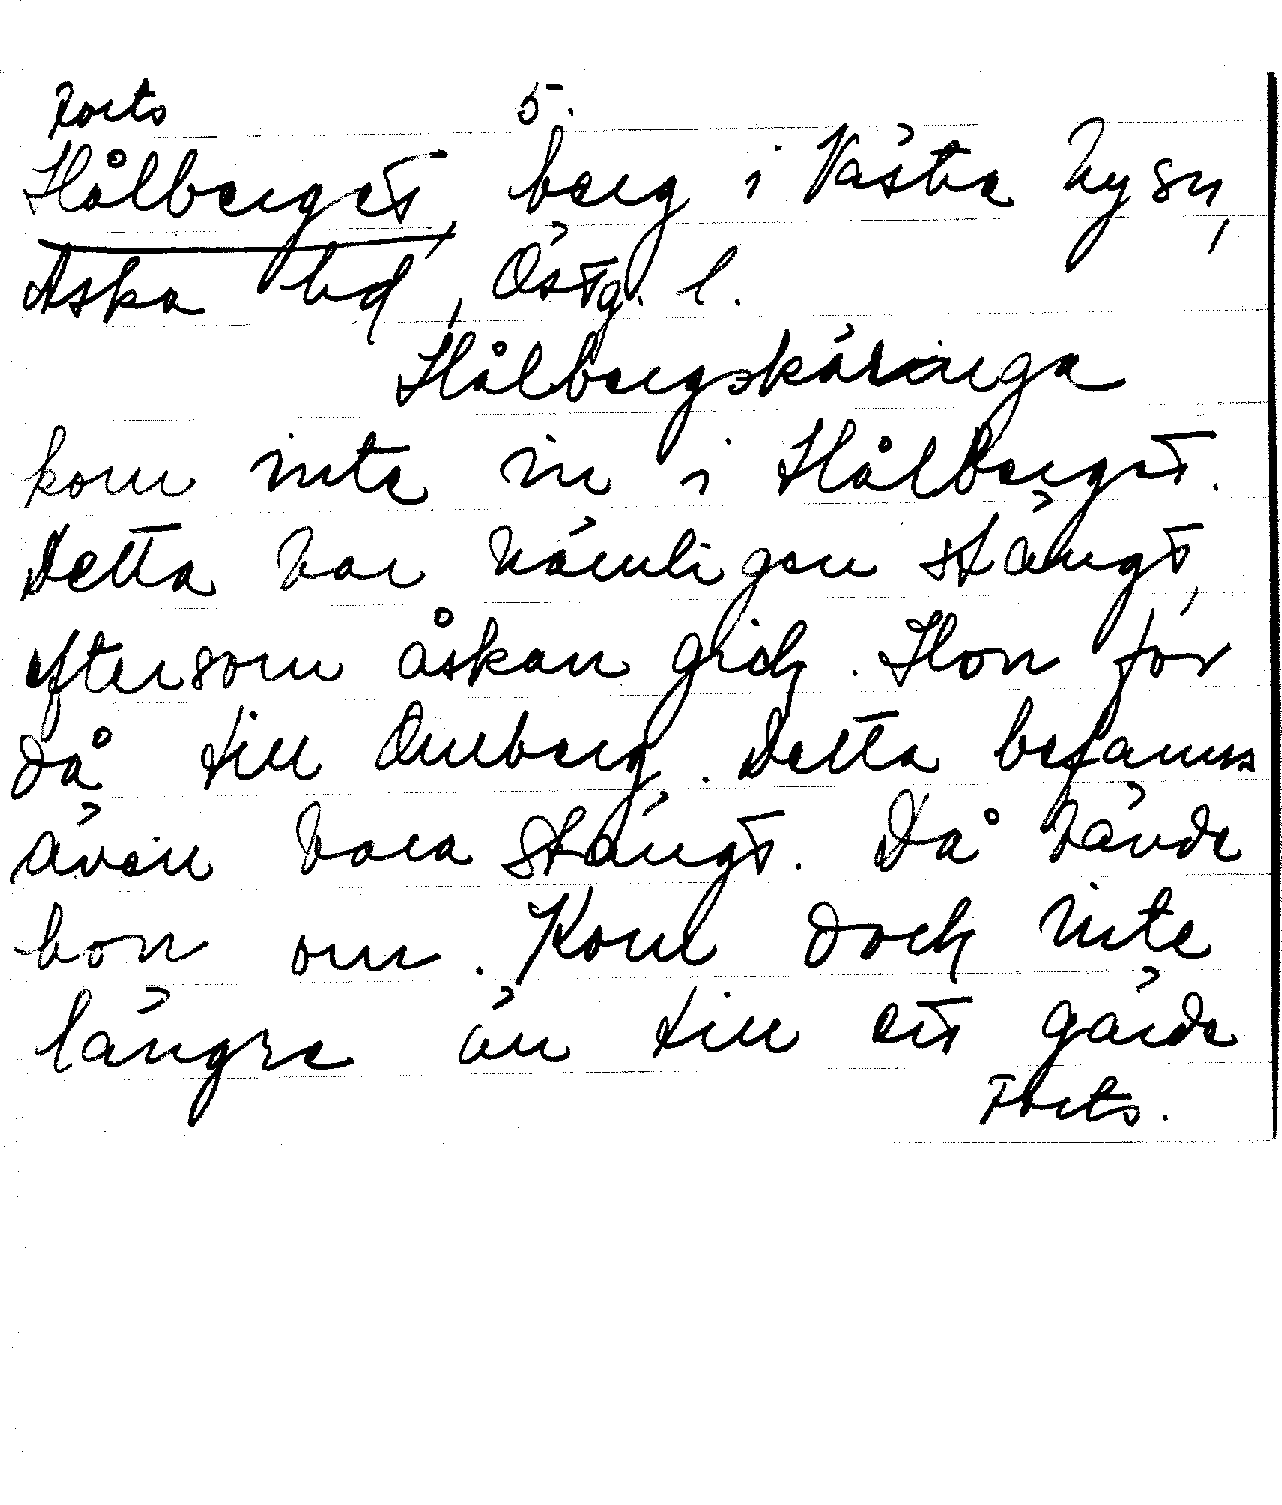 Forts 5.
Hålberget, berg i Västra Ny sn,
Aska hd, Östg. l.
Hålbergskäringa
kom inte in i Hålberget.
Detta var nämligen stängt,
eftersom åskan gick. Hon for
då till Omberg. Detta befanns
även vara stängt. Då vände
hon om. Kom dock inte
längre än till ett gärde
Forts.